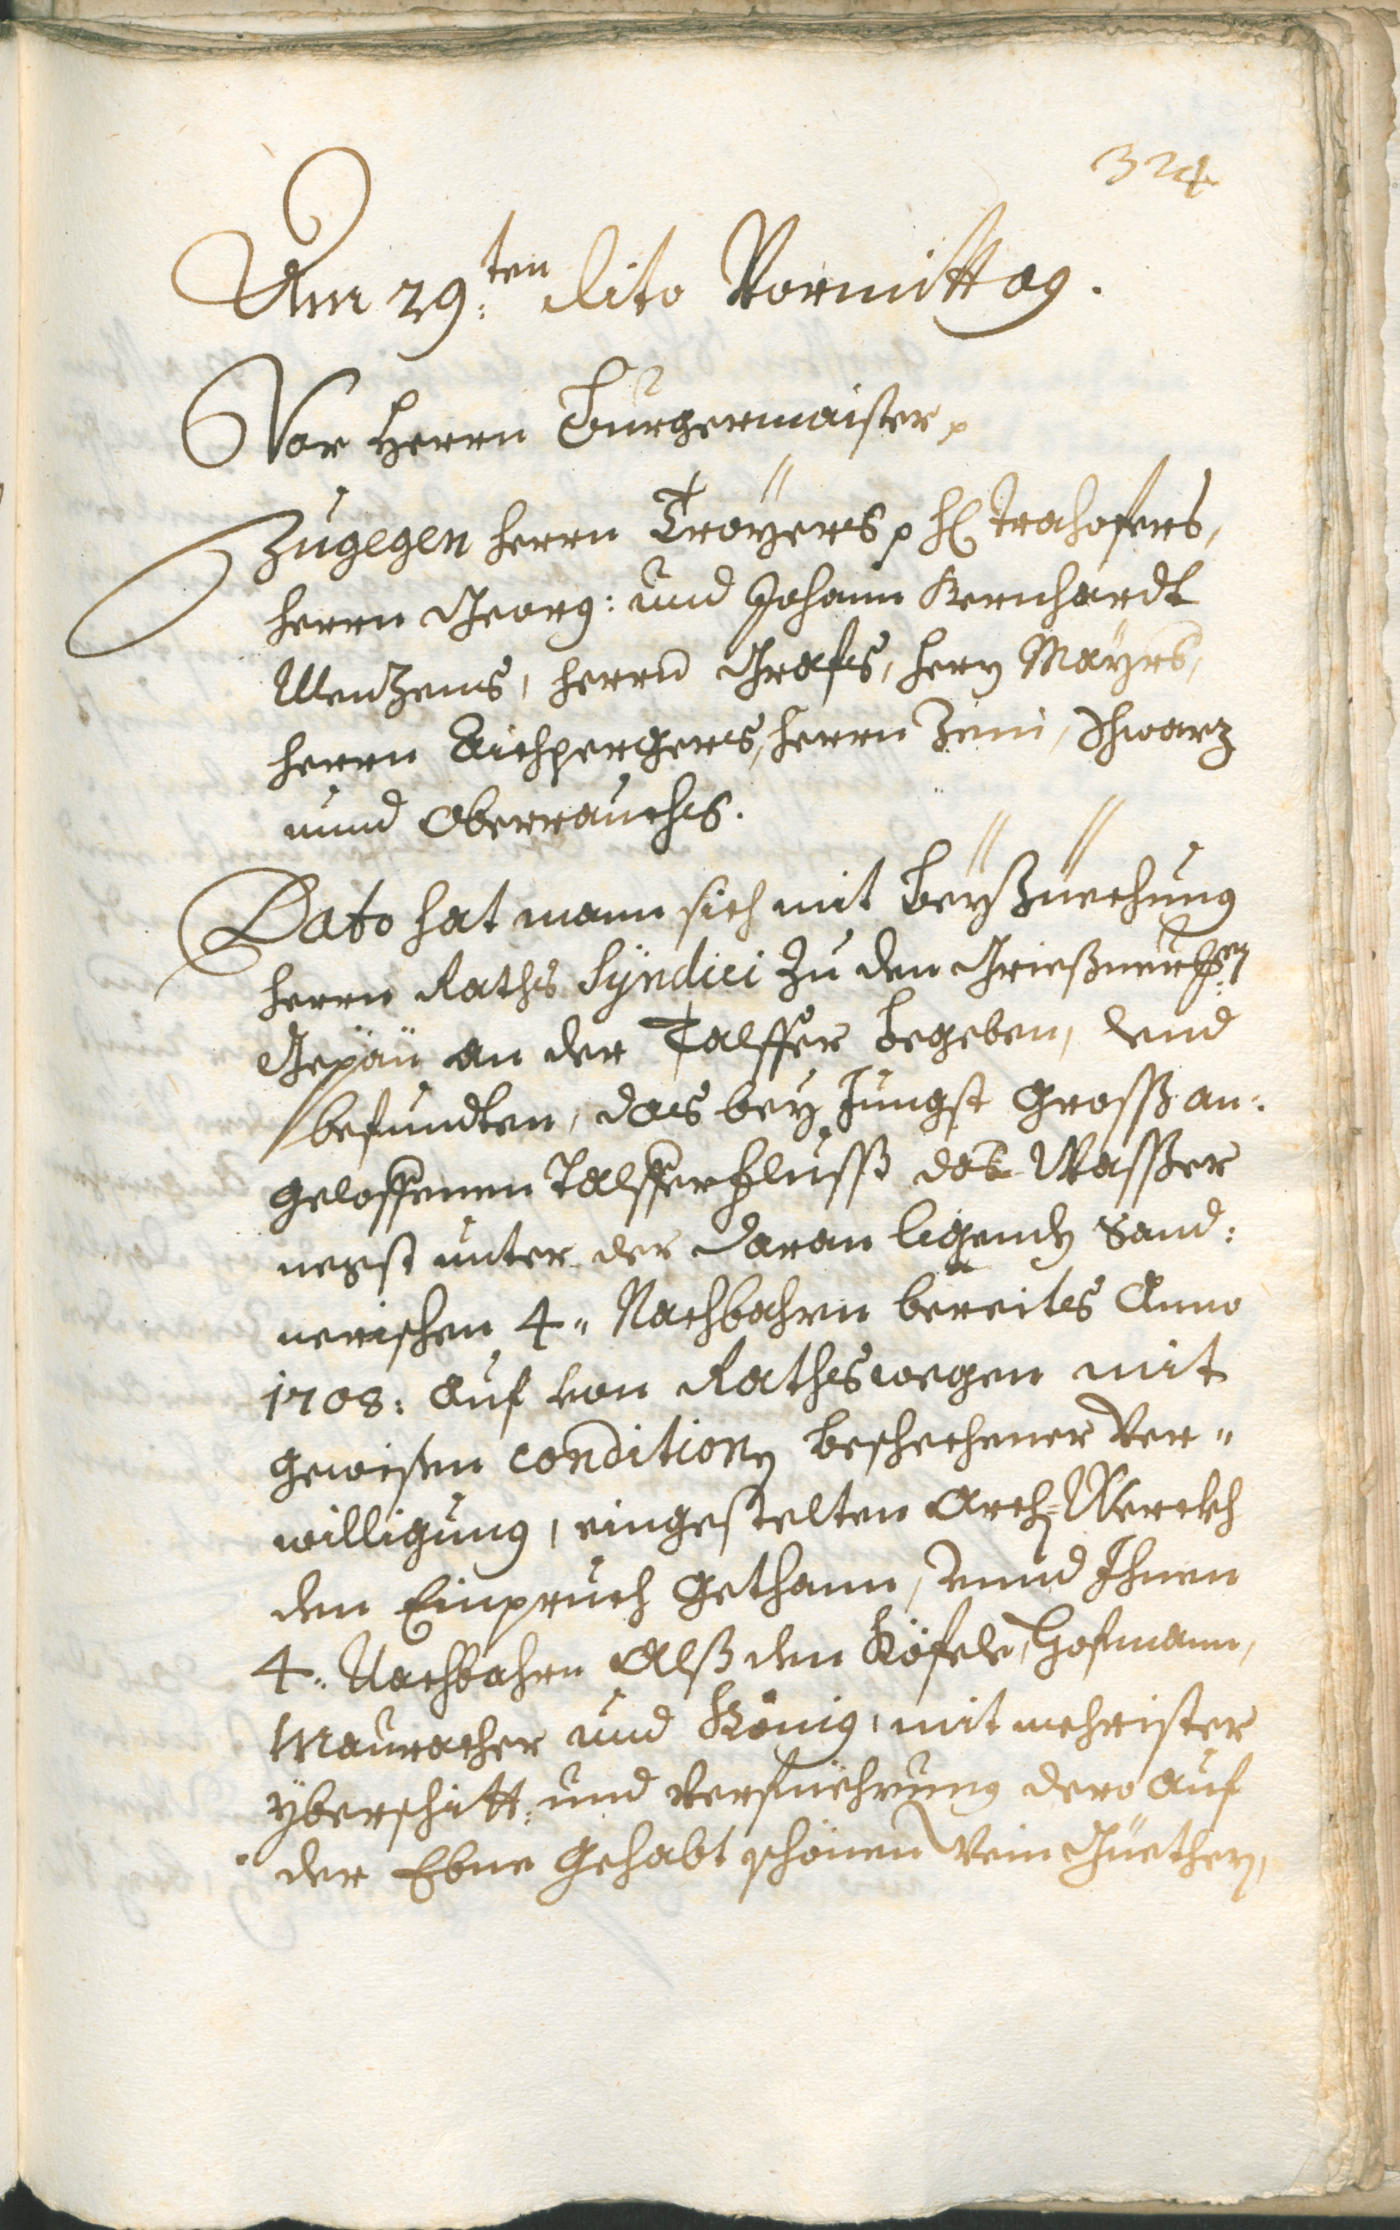 324
Am 29:ten dito Vormittag.
Vor Herrn Burgermaister
Zugegen Herrn Troÿers H: trahofers,
Herrn Georg: und Johann Bernhardt
Menzens, Herrn Grafs, Herrn Maÿrs,
Herrn Aichpergers, Herrn Zeni, Schwarz
unnd Oberrauchs.
Dato hat mann sich mit Beÿziechung
Herrn Raths Sÿndici zu den
Gepäu an der Talffer begeben, und
befundten, das beÿ Jungst Gross an:
geloffenen Talfferfluss das Wasser
negst unter der daran ligendten Sand:
nerischen 4" Nachbahrn bereits Anno
1708: auf von Rathswegen mit
gewissen conditionen beschechener Ver"
willigung, eingestelten Arch-Werckh
den Einpruch gethann, unnd Ihnen
4" Nachbahrn Alß den Köfele, Hofmann,
Mauracher und König, mit mehrister
ÿberschitt: und Verfüehrung dero auf
der Ebne gehabt schönen Wein Güethern,